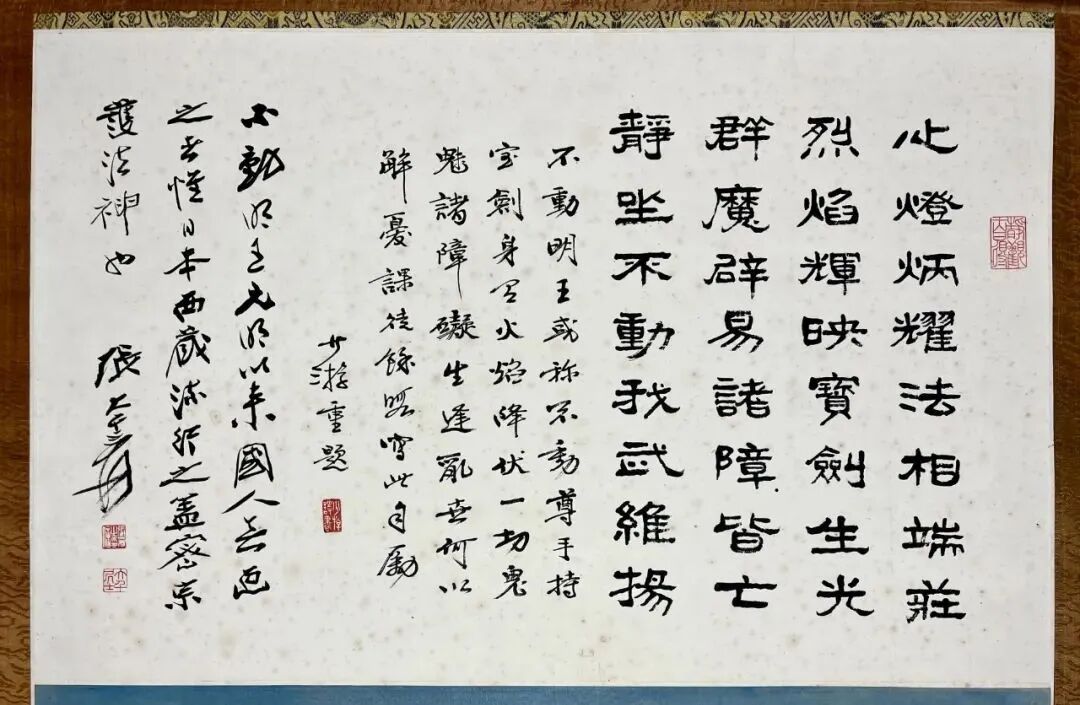 心燈炳耀法相端莊
烈焰輝映寶劍生光
群魔辟易諸障皆亡
靜坐不動我武維揚
不動明王或称不動尊手持
宝劍身置火焰降伏一切鬼
魅諸障礙生逢亂世何以
解憂課徒餘暇寫此自勵
少游重題
不動明王元明以來國人無画
之者惟日本西藏流行之蓋密宗
護法神也
張大千爰